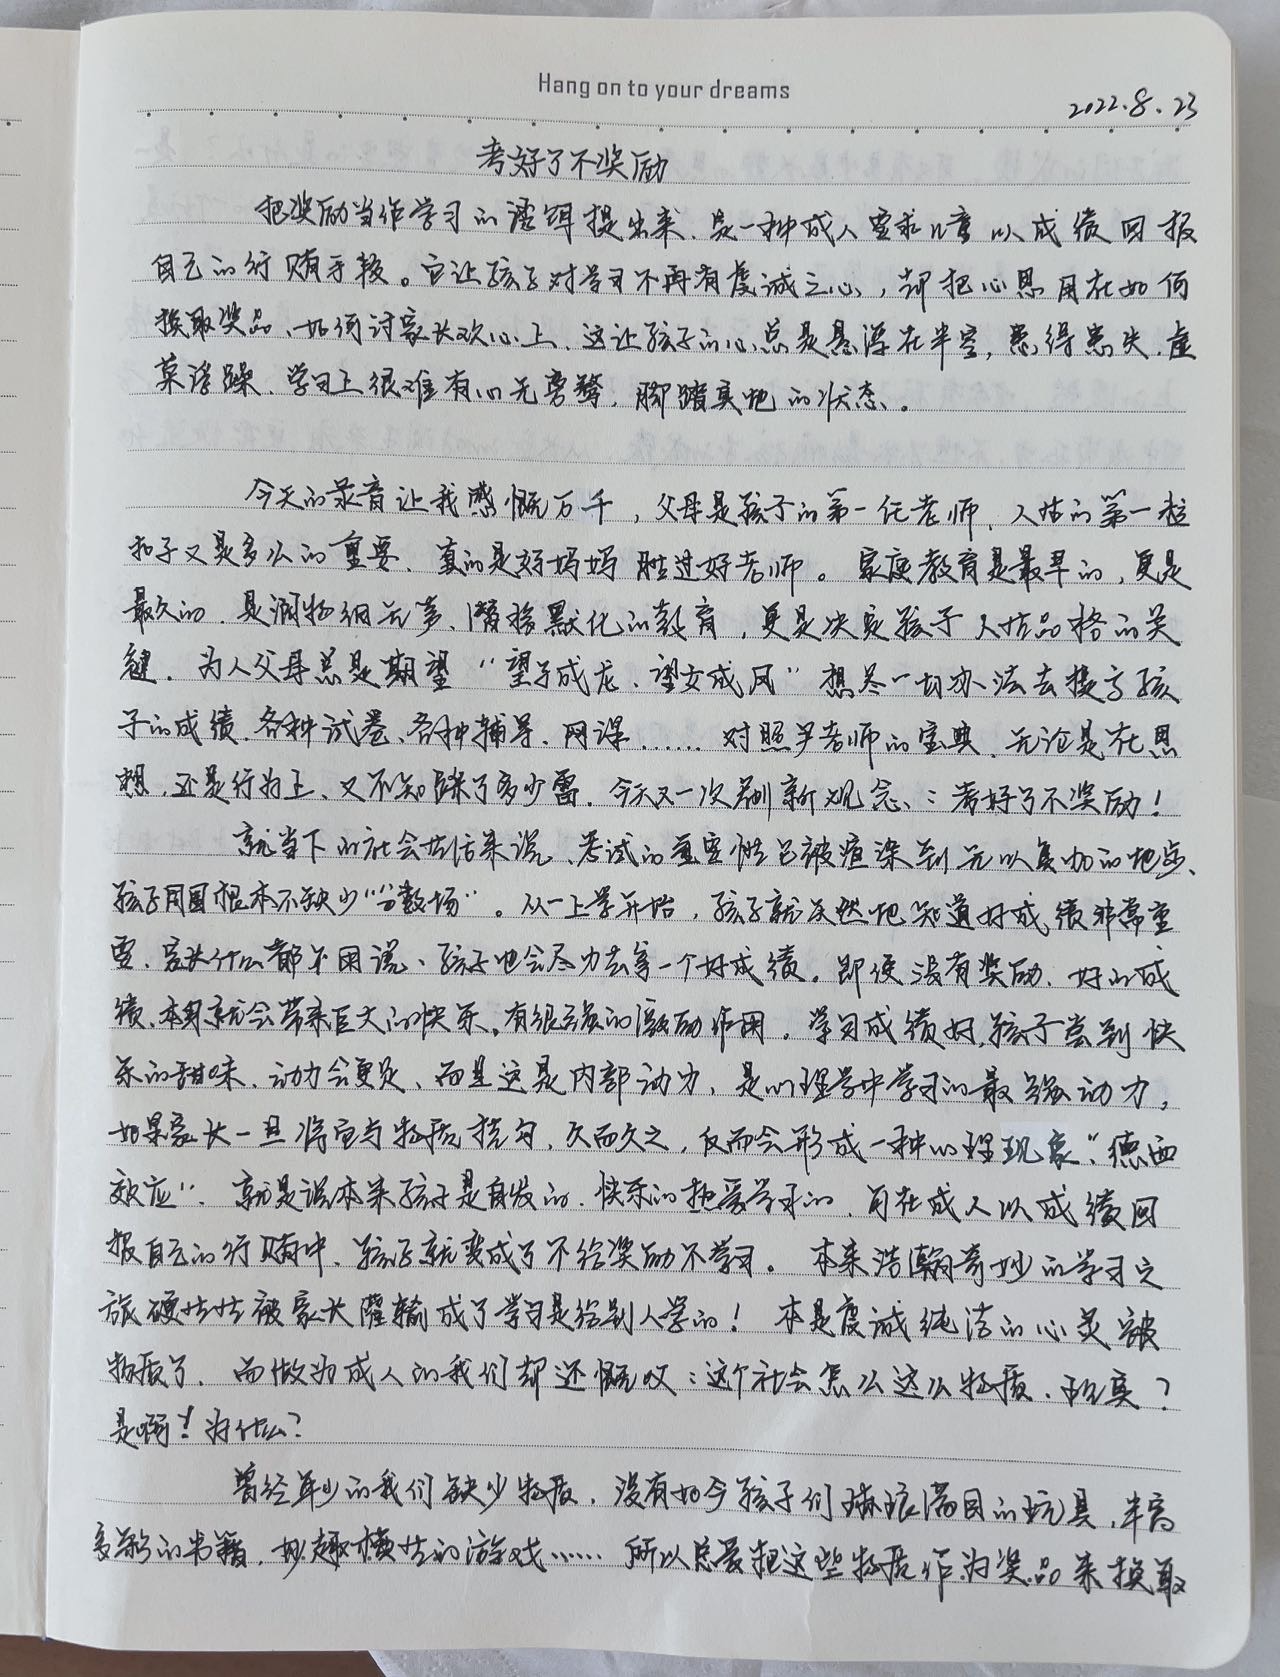 Hang on to your dreams
2022.8.23
考好了不奖励
把奖励当作学习的诱饵提出来、是一种成人要求儿童以成绩回报
自己的行贿手段。它让孩子对学习不再有虔诚之心，却把心思用在如何
换取奖品、如何讨家长欢心上、这让孩子的心总是悬浮在半空，患得患失、虚
荣浮躁、学习上很难有心无旁骛，脚踏实地的状态、。
今天的录音让我感慨万千，父母是孩子的第一任老师、人生的第一粒
扣子又是多么的重要、真的是好妈妈胜过好老师。家庭教育是最早的，更是
最久的、是润物细无声、潜移默化的教育，更是决定孩子人生品格的关
键、为人父母总是期望“望子成龙、望女成凤”想尽一切办法去提高孩
子的成绩、各种试卷、各种辅导、网课…… 对照尹老师的宝典、无论是在思
想、还是行为上、又不知踩了多少雷、今天又一次刷新观念、：考好了不奖励！
就当下的社会生活来说、考试的重要性已被渲染到无以复加的地步、
孩子周围根本不缺少“分数场”。从一上学开始，孩子就天然地知道好成绩非常重
要、家长什么都不用说、孩子也会尽力去争一个好成绩。即便没有奖励、好的成
绩、本身就会带来巨大的快乐、有很强的激励作用。学习成绩好，孩子尝到快
乐的甜味、动力会更足、而且这是内部动力，是心理学中学习的最强动力，
如果家长一旦将它与物质挂勾、久而久之，反而会形成一种心理现象“德西
效应”、就是说本来孩子是自发的、快乐的热爱学习的、可在成人以成绩回
报自己的行贿中、孩子就变成了不给奖励不学习。本来浩瀚奇妙的学习之
旅硬生生被家长灌输成了学习是给别人学的！本是虔诚纯洁的心灵被
物质了、而做为成人的我们却还慨叹：这个社会怎么这么物质、现实？
是啊！为什么？
曾经年少的我们缺少物质、没有如今孩子们琳琅满目的玩具、丰富
多彩的书籍、妙趣横生的游戏…… 所以总爱把这些物质作为奖品来换取